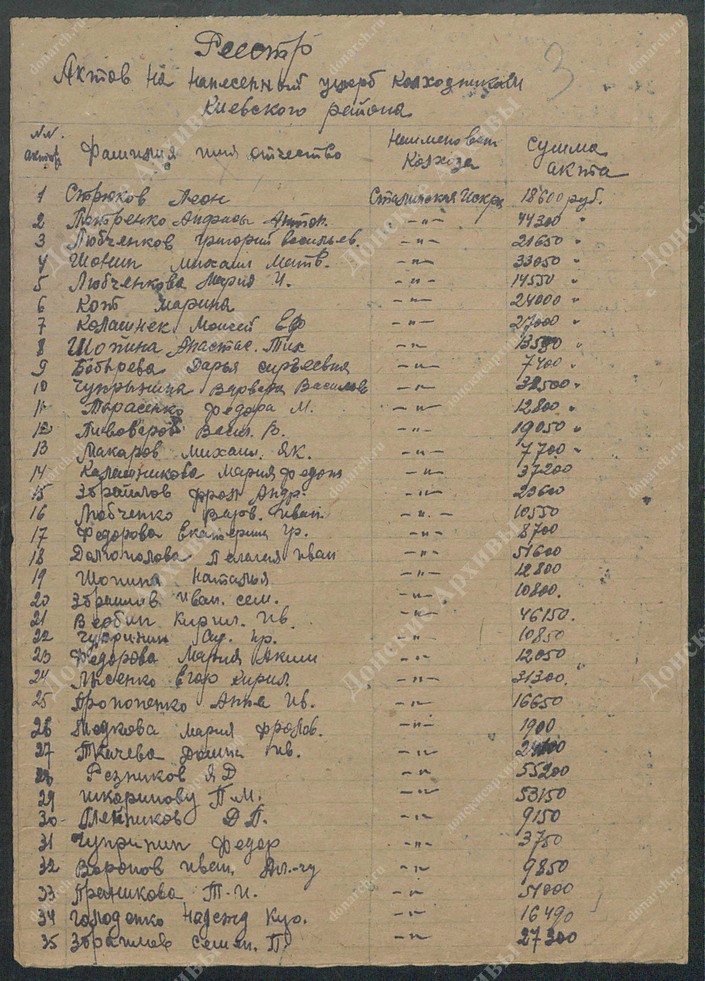 3
Реестр
Актов на нанесенный ущерб колхозникам
Киевского района
№№ актов Фамилия имя отчество Наименован колхоза Сумма акта
1 Стрюков Леон Сталинская Искра 18600 руб.
2 Петренко Анфисы Антон. -"- 44300 "
3 Любченков Григорий Васильев. -"- 21650 "
4 Шонин Михаил Матв. -"- 33050 "
5 Любченкова Мария И. -"- 14550 "
6 Кот Марина -"- 24000 "
7 Моисей Еф -"- 27000 "
8 Шопина Анастас. Тих -"-
9 Бобырева Дарья -"- 7400 "
10 Варвара Васильев -"- "
11 Тарасенко Федора М. -"- 12800 "
12 Пивоваров Васил. В. -"- 19050 "
13 Макаров Михаил. Як. -"- 7700 "
14 Калашникова Мария -"- 37200
15 Андр. -"-
16 Любченко Варв. Иван -"- 10550
17 Федорова Екатерина Гр. -"- 8700
18 Долгополова Пелагея Иван -"- 51600
19 Шопина Наталья -"- 12800
20 Иван. Сем. -"- 10800.
21 Вербин Кирил. Ив. -"- 46150.
22 Чупринин Пр. -"- 10850
23 Федорова Мария Аким -"- 12050
24 Егор Кирил -"- 31300.
25 Прокопенко Анна Ив. -"- 16650
26 Мария Фролов. -"- 1900
27 Ткачева Ив. -"-
28 Резников Я Д -"- 55200
29 П.М. -"- 53150
30 Д П. -"- 9150
31 Чупринин Федор -"- 3750
32 Воронов Иван -"- 9850
33 Т. И. -"- 51000
34 Голоденко Надежд Куз. -"- 16490
35 Семен. П. -"- 27300